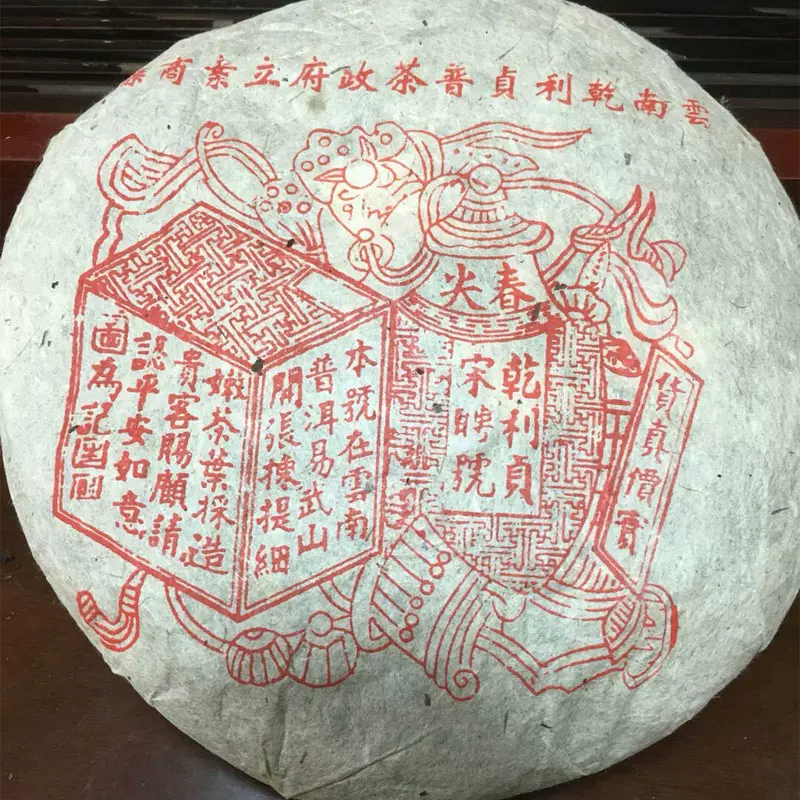 雲南乾利貞普茶政府立案商
春尖
乾利貞
宋聘號
貨真價實
本號在雲南
普洱易武山
開張揀提細
嫩茶葉採造
貴客賜顧請
認平安如意
圖為記